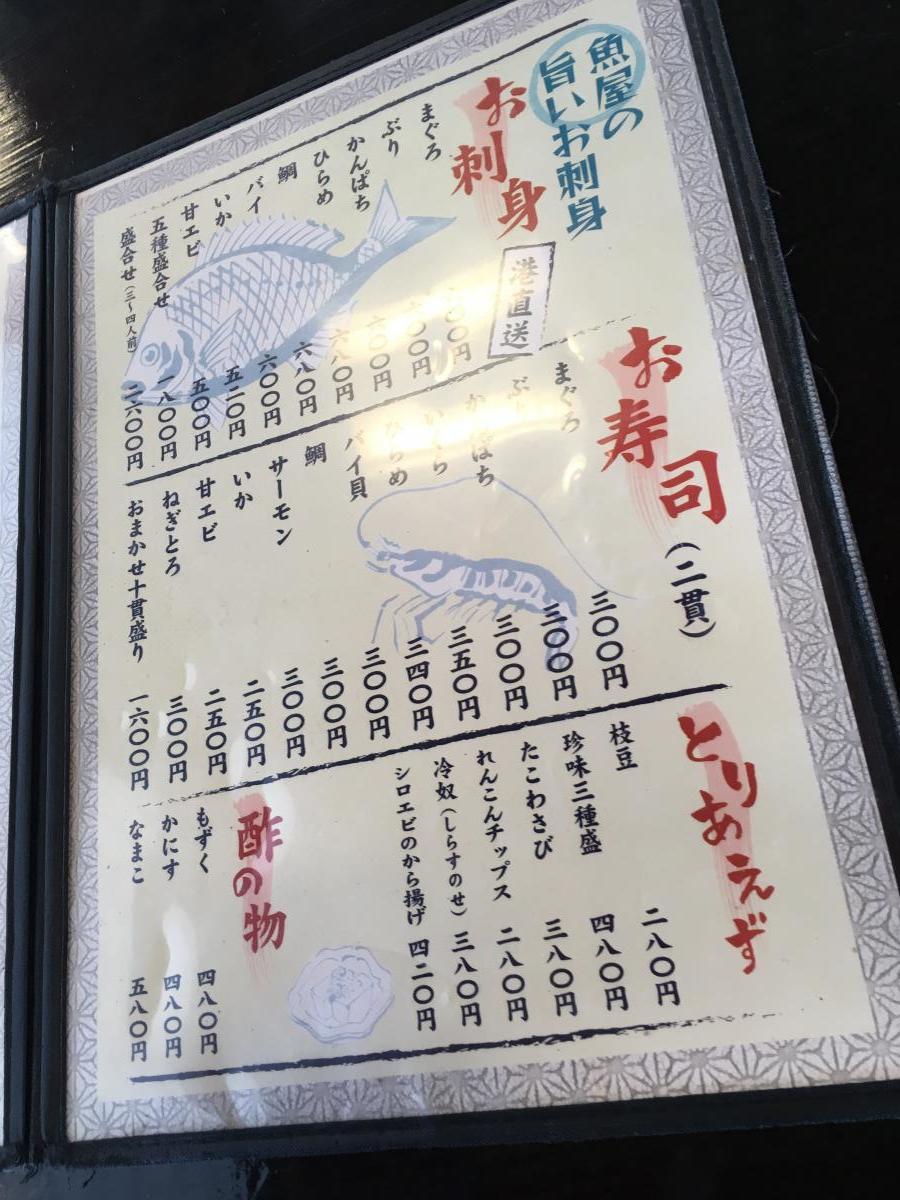 魚屋の
旨いお刺身
お刺身
港直送
まぐろ
ぶり
かんぱち
ひらめ 六八〇円
鯛 六八〇円
バイ 六〇〇円
いか 五二〇円
甘エビ 五〇〇円
五種盛合せ 一八〇〇円
盛合せ(三〜四人前) 二六〇〇円
お寿司(二貫)
まぐろ 三〇〇円
ぶり 三〇〇円
かんぱち 三〇〇円
いくら 三五〇円
ひらめ 三四〇円
バイ貝 三〇〇円
鯛 三〇〇円
サーモン 三〇〇円
いか 二五〇円
甘エビ 二五〇円
ねぎとろ 三〇〇円
おまかせ十貫盛り 一六〇〇円
とりあえず
枝豆 二八〇円
珍味三種盛 四八〇円
たこわさび 三八〇円
れんこんチップス 二八〇円
冷奴(しらすのせ) 三八〇円
シロエビのから揚げ 四二〇円
酢の物
もずく 四八〇円
かにす 四八〇円
なまこ 五八〇円